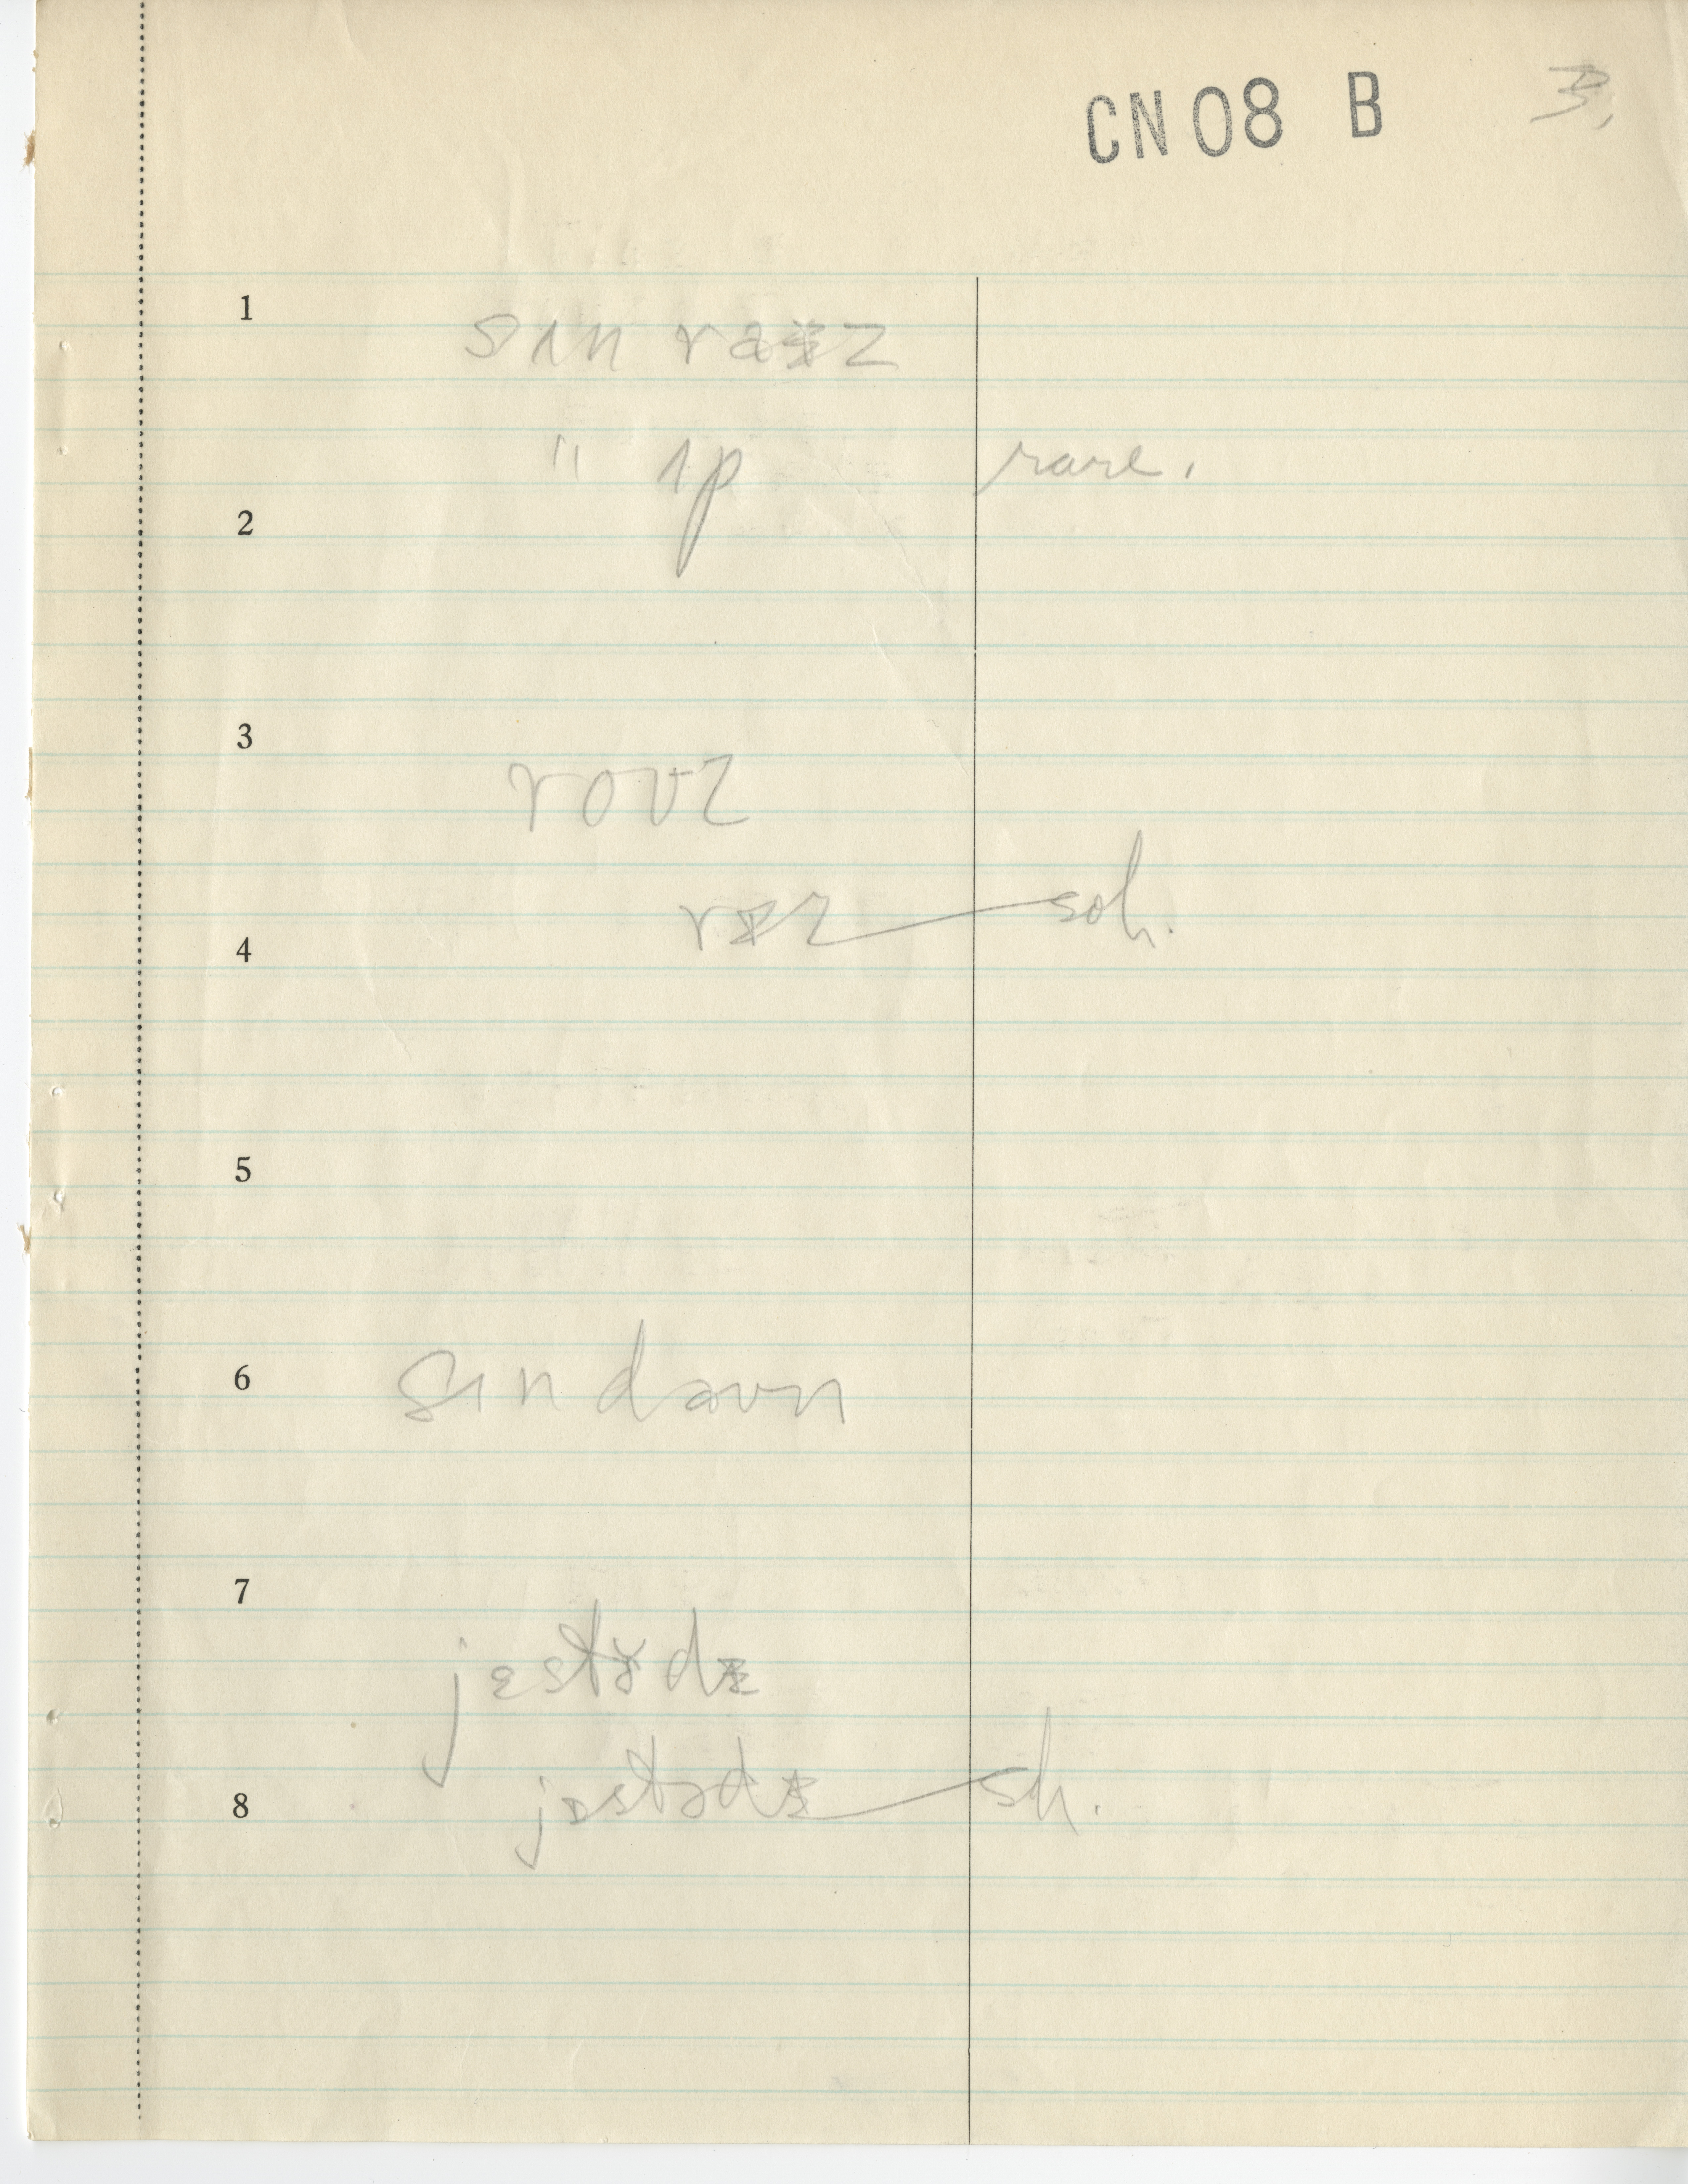 CN08 B 3,
1
sʌn raɪz
" ʌp rare.
2
3
rovz
rɪz soh.
4
5
6
sʌn davn
7
jɛstɚdɪ
jɪstədɪ sh.
8